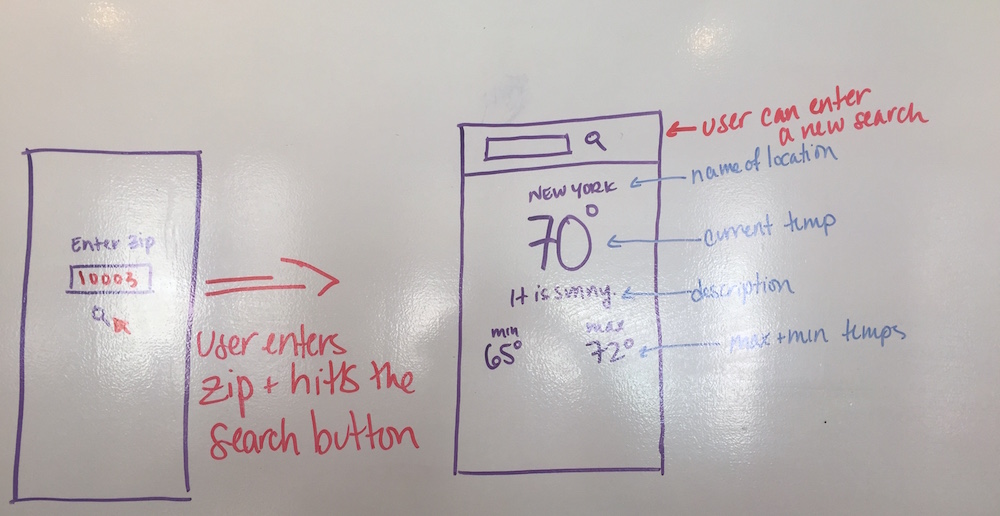 Enter Zip
10003
User enters
zip + hits the
search button
user can enter
a new search
NEW YORK
name of location
70°
current temp
It is sunny
description
min
65°
max
72°
max + min temps